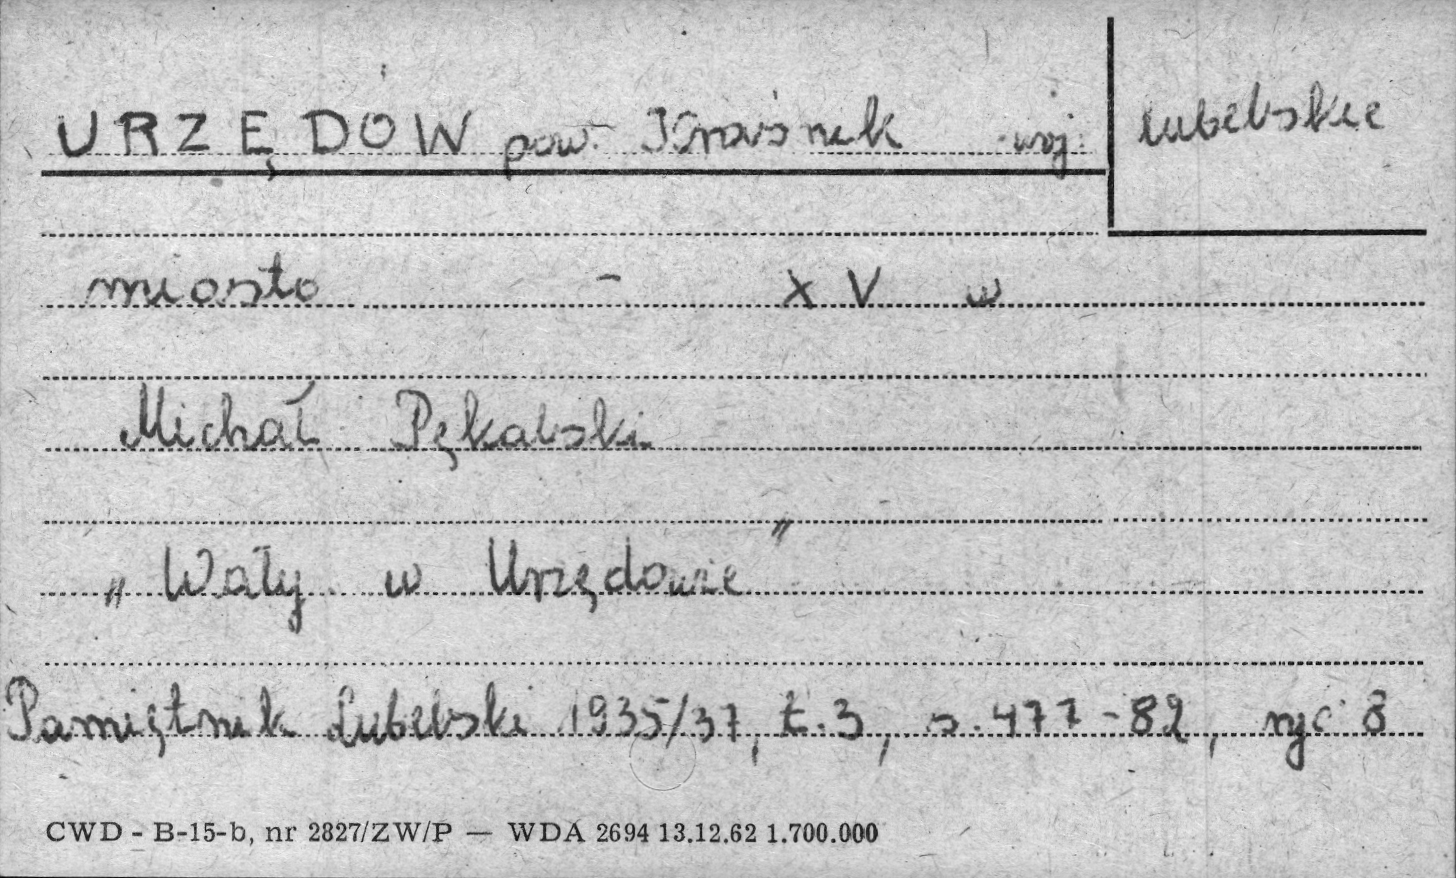 URZĘDÓW pow. Kraśnik woj. lubelskie
miasto - XV w
Michał Pękalski
„Wały w Urzędowie"
Pamiętnik Lubelski 1935/37, t.3, s.477-82, ryc 8
CWD - B-15-b, nr 2827/ZW/P — WDA 2694 13.12.62 1.700.000